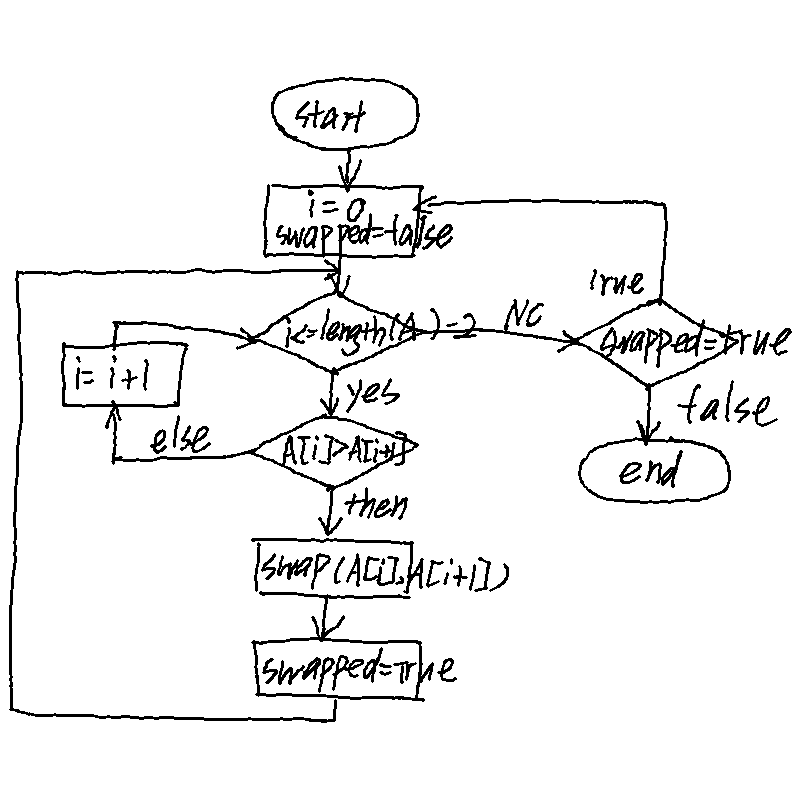 start
i=0
swapped=false
i<=length(A)-2
NO
true
swapped=true
i=i+1
yes
false
else
A[i]>A[i+1]
end
then
swap(A[i],A[i+1])
swapped=true